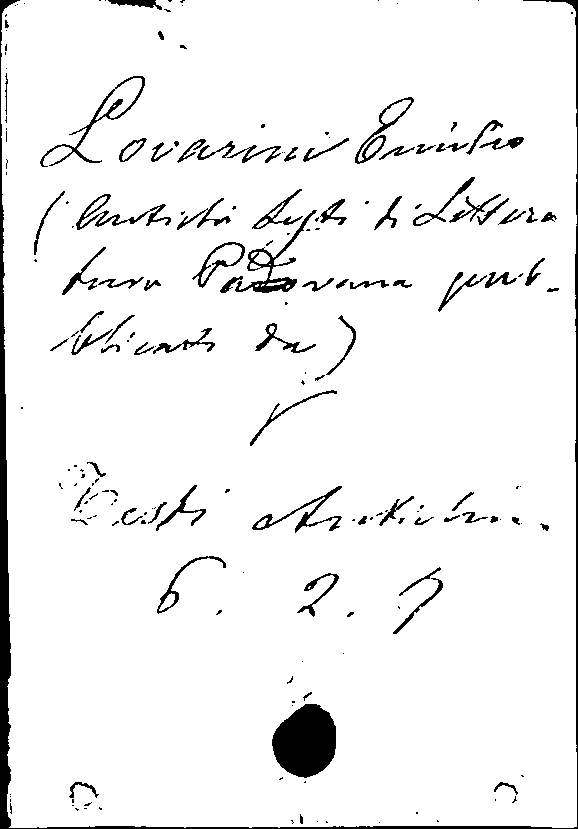 Lovarini Emilio
(Antichi testi di Lettera
tura Padovana pub-
blicati da)
V
Testi Antichi.
6. 2. 7